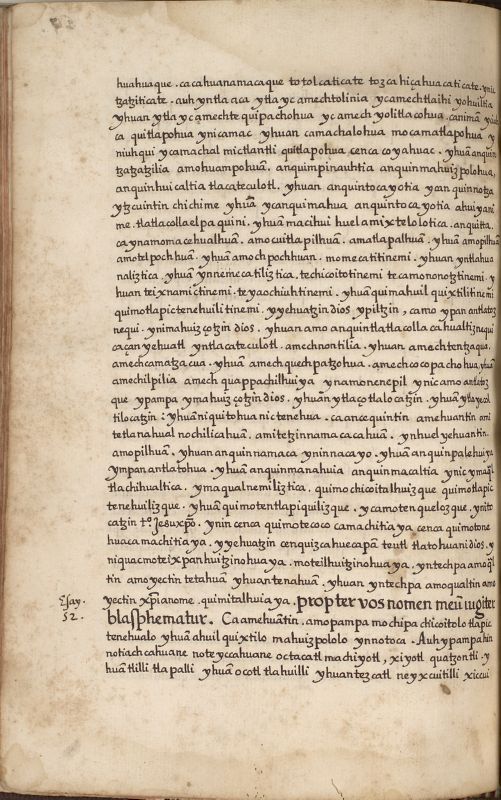 huahuaque. cacahuanamacaque totolcaticate tozcahiçahuacaticate. ynic
tzatziticate. auh yntla aca ytla yc amechtolinia ycamechtlaihiyohuiltia
yhuan ytla yc amechtequipachohua yc amechyolitlacohua. caniman
ca quitlapohua ynicamac yhuan camachalohua mocamatlapohua
niuhqui ycamachal mictlantli quitlapohua cenca coyahuac. yhuā anquin
tzatzatzilia amohuampohuā. anquimpinauhtia anquinmahuizpolohua,
anquinhuicaltia tlacateculotl. yhuan anquintocayotia yan quinnotza
ytzcuintin chichime yhuā ycanquimahua anquintocayotia ahuiyani
me. tlatlacolla elpaquini. yhuā macihui huel amixtelolotica. anquitta.
ca ynamomacehualhuā. amocuitlapilhuā. amatlapalhuā. yhuā amopilhuā
amotelpochhuā. yhuā amochpochhuan. momecatitinemi. yhuan yntlahua
naliztica. yhuā ynnemecatiliztica. techicoitotinemi tecamononotztinemi. y
huan teixnamictinemi. teyaochiuhtinemi. yhuā quimahuilquixtilitinemi
quimotlapictenehuilitinemi. yyehuatzin dios ypiltzin, camo ypan antlatoz
nequi. ynimahuizçotzin dios. yhuan amo anquintlatlacollacahualtiznequi
caçan yehuatl yntlacateculotl. amechnontilia. yhuan amechtentzaqua.
amechcamatzacua. yhuā amechquechpatzohua. amechcocopachohua, yhuā
amechilpilia amechquappachilhuiya ynamonenepil ynic amo antlatoz
que ypampa ymahuizçotzin dios. yhuan ytlaçotlalocatzin. yhuā ytlayecol
tilocatzin: yhuā niquitohua nictenehua. ca ancequintin amehuantin omi
tetlanahualnochilicahuā. amitetzinnamacacahuā. ynhuel yehuantin
amopilhuā. yhuan anquinnamaca ynninnacayo. yhuā anquinpalehuiya
ympan antlatohua. yhuā anquinmanahuia anquinmacaltia ynic
tlachihualtica. ymaqualnemiliztica. quimochicoitalhuizque quimotlapic
tenehuilizque. yhuā quimotentlapiquilizque. ycamotenquelozque, ynito
catzin tº. Jesuxpō. ynin cenca quimotecococamachitia ya cenca quimotone
huacamachitia ya. yyehuatzin cenquizcahuecapā teutl tlatohuani dios.
niquacmoteixpanhuitzinohua ya. moteilhuitzinohua ya. yntechpa
tin amoyectin tetahuā yhuan tenahuā. yhuan yntechpa amoqualtin amo
yectin xpianome. quimitalhuia ya. propter vos nomen meū iugiter
Esay.
52.
blasphematur. Ca amehuātin. amopampa mochipa chicoitolo tlapic
tenehualo yhuā ahuilquixtilo mahuizpololo ynnotoca. Auh ypampa hin
notiachcahuane noteyccahuane octacatl machiyotl, xiyotl quatzontli. y
huā tlilli tlapalli yhuā ocotl tlahuilli yhuan tezcatl neyxcuitilli xiccui